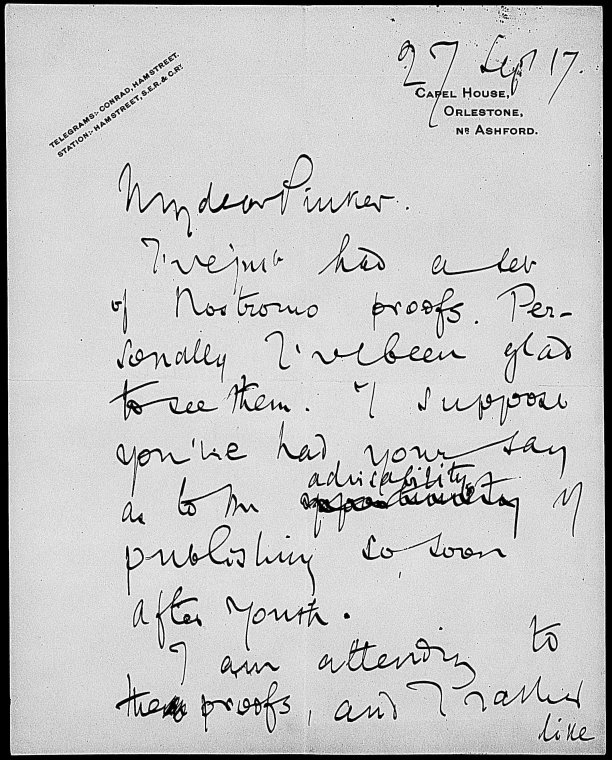 TELEGRAMS:- CONRAD, HAMSTREET.
STATION:- HAMSTREET, S.E.R. & C.RY
27 Sept 17.
CAPEL HOUSE,
ORLESTONE,
NR ASHFORD.
My dear Pinker.
I've just had a set
of Nostromo proofs. Per-
sonally I've been glad
to see them. I suppose
you've had your say
as to the advisability of
publishing so soon
after Youth.
I am attending to
the proofs, and I rather
like